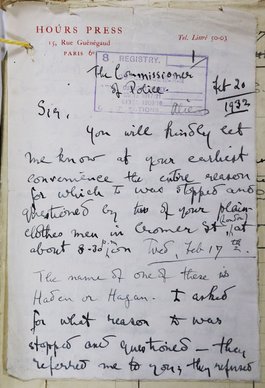 HOURS PRESS
15, Rue Guénégaud
Tel. Littré 50-03
PARIS 6e
8 REGISTRY.
The Commissioner
of Police.
Feb 20
1932
Sir,
You will kindly let
me know at your earliest
convenience the entire reason
for which I was stopped and
questioned by two of your plain-
clothes men in Cromer St, London at
about 8-30 pm on Wed, Feb 17th.
The name of one of these is
Haden or Hagan. I asked
for what reason I was
stopped and questioned – they
referred me to you; they refused